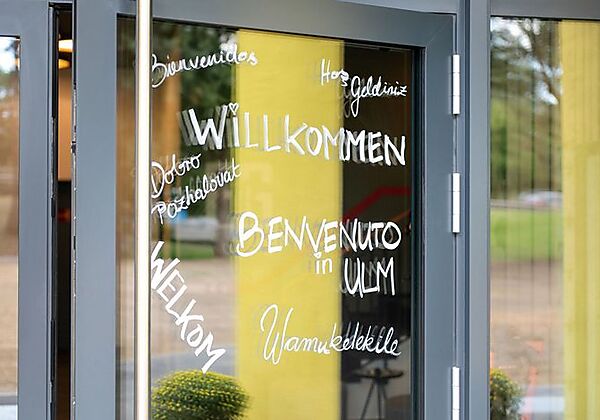 Bienvenidos
Hoş
Geldiniz
WiLLKOMMEN
Dobro
Pozhalovat
BENVENUTO
in
ULM
WELKOM
Wamukelekile